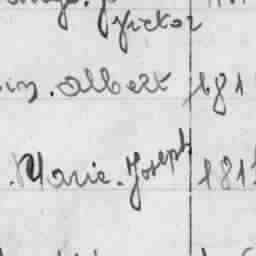 Victor
Albert 181
Marie. Joseph 181